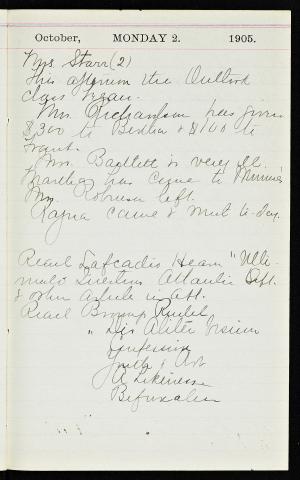 October, MONDAY 2. 1905.
Mrs. Starr (2)
This afternoon the Outlook
class began.
Mrs. Richardson has given
$300 to Bertha & $100 to
Grant.
Mrs. Bartlett is very ill.
Martha has come to Minnie's
Mrs. Robinson left.
came & went to-day.
Read Lafcadio Hearn "Ulti-
mate Questions Atlantic Sept.
& other article in Oct.
Read Browning
" Dis Aliter Visum
Confessions
Youth & Art
A Likeness